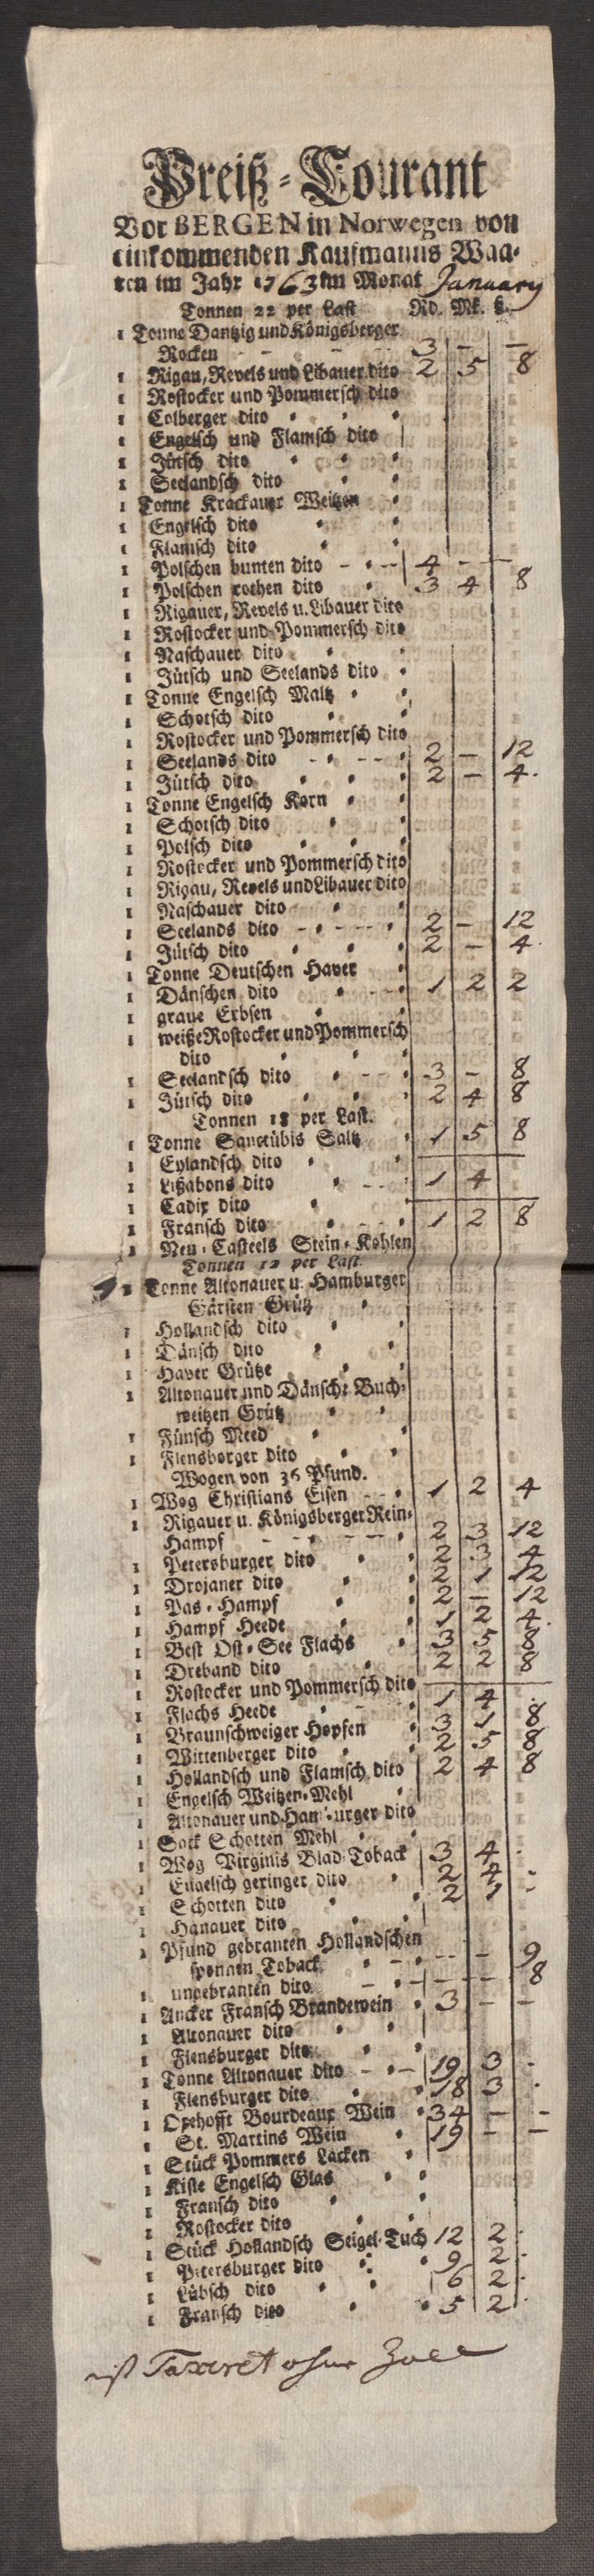 Preiß-Courant
Vor BERGEN in Norwegen von
einkommenden Kaufmanns Waa-
ren im Jahr 1763 im Monat January
Tonnen 22 per Last Rd. Mk. ß.
1 Tonne Dantzig und Königsberger
Rocken - - - 3 - -
1 Rigau, Revels und Libauer dito 2 5 8
1 Rostocker und Pommersch dito
1 Colberger dito
1 Engelsch und Flamsch dito
1 Jütsch dito
1 Seelandsch dito
1 Tonne Krackauer Weitzen
1 Engelsch dito
1 Flamsch dito
1 Polschen bunten dito 4 - -
1 Polschen rothen dito 3 4 8
1 Rigauer, Revels u. Libauer dito
1 Rostocker und Pommersch dito
1 Naschauer dito
1 Jütsch und Seelands dito
1 Tonne Engelsch Maltz
1 Schotsch dito
1 Rostocker und Pommersch dito
1 Seelands dito 2 - 12
1 Jütsch dito 2 - 4
1 Tonne Engelsch Korn
1 Schotsch dito
1 Polsch dito
1 Rostocker und Pommersch dito
1 Rigau, Revels und Libauer dito
1 Naschauer dito
1 Seelands dito 2 - 12
1 Jütsch dito 2 - 4
1 Tonne Deutschen Haver
1 Dänschen dito 1 2 2
1 graue Erbsen
1 weiße Rostocker und Pommersch
dito
1 Seelandsch dito 3 - 8
1 Jütsch dito 2 4 8
Tonnen 18 per Last.
1 Tonne Sanctübis Saltz 1 5 8
1 Eylandsch dito
1 Lißabons dito 1 4
1 Cadix dito
1 Fransch dito 1 2 8
1 Neu-Casteels Stein-Kohlen
Tonnen 12 per Last
1 Tonne Altonauer u. Hamburger
Gärsten Grütz
1 Hollandsch dito
1 Dänsch dito
1 Haver Grütze
1 Altonauer und Dänsch: Buch-
weitzen Grütz
1 Fünsch Meed
1 Flensborger dito
Wogen von 36 Pfund.
1 Wog Christians Eisen 1 2 4
1 Rigauer u. Königsberger Rein-
Hampf 2 3 12
1 Petersburger dito 2 3 4
1 Drojaner dito 2 1 12
1 Pas-Hampf 2 - 12
1 Hampf Heede 1 2 4
1 Best Ost-See Flachs 3 5 8
1 Dreband dito 2 2 8
1 Rostocker und Pommersch dito
1 Flachs Heede 1 4
1 Braunschweiger Hopfen 3 1 8
1 Wittenberger dito 2 5 8
1 Hollandsch und Flamsch dito 2 4 8
1 Engelsch Weitzen-Mehl
1 Altonauer und Hamburger dito
1 Sack Schotten Mehl
1 Wog Virginis Blad-Toback 3 4
1 Engelsch geringer dito 2 4 -
1 Schotten dito 2 1 -
1 Hanauer dito
1 Pfund gebranten Hollandschen
sponnen Toback - - 9
1 ungebranten dito - - 8
1 Ancker Fransch Brandewein 3 - -
1 Altonauer dito
1 Flensburger dito
1 Tonne Altonauer dito 19 3
1 Flensburger dito 18 3
1 Oxehofft Bourdeaux Wein 34 - -
1 St. Martins Wein 19 - -
1 Stück Pommers Lacken
1 Kiste Engelsch Glas
1 Fransch dito
1 Rostocker dito
1 Stück Hollandsch Seigel-Tuch 12 2
1 Petersburger dito 9 2
1 Lübsch dito 6 2
1 Fransch dito 5 2
ist Taxeret ohne Zoll